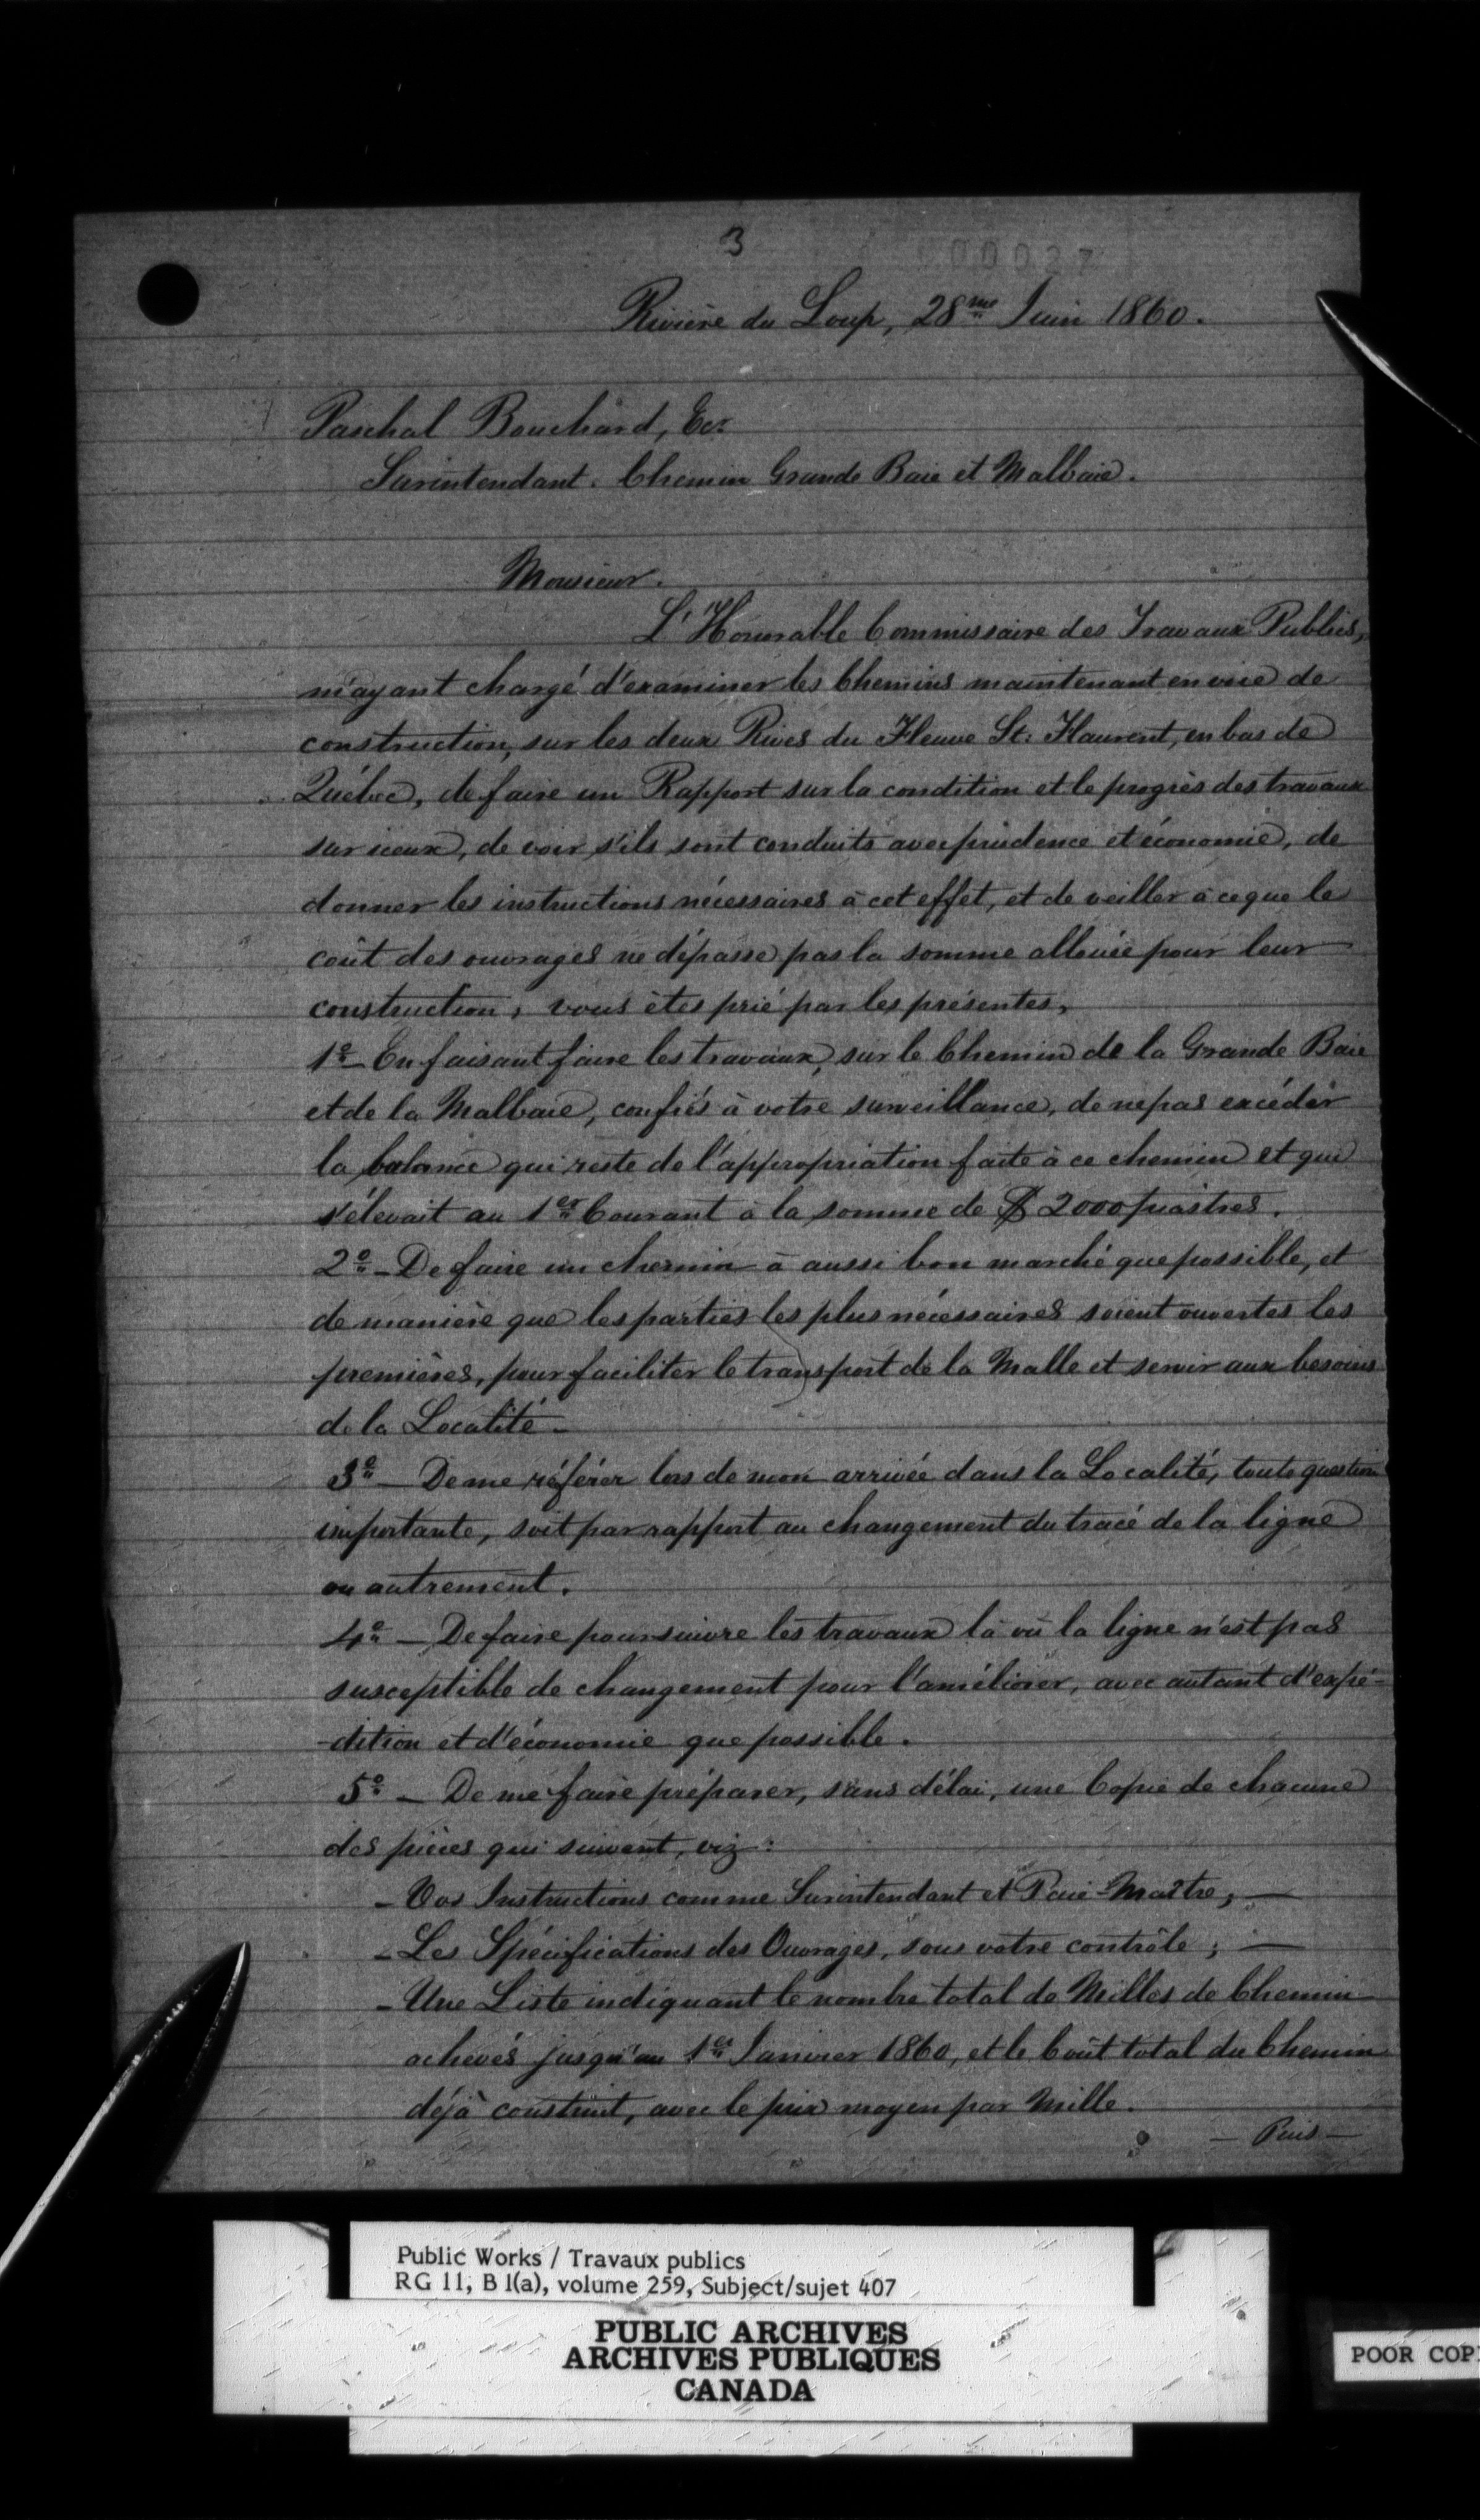 3
000027
Rivière du Loup, 28me Juin 1860.
Paschal Bouchard, Ecr
Surintendant. Chemin Grande Baie et Malbaie.
Monsieur.
L'Honorable Commissaire des Travaux Publics,
m'ayant chargé d'examiner les Chemins maintenant en voie de
construction, sur les deux Rives du Fleuve St: Laurent, en bas de
Québec, de faire un Rapport sur la condition et le progrès des travaux
sur iceux, de voir s'ils sont conduits avec prudence et économie, de
donner les instructions nécessaires à cet effet, et de veiller à ce que le
coût des ouvrages ne dépasse pas la somme allouée pour leur
construction, vous êtes prié par les présentes,
1o - En faisant faire les travaux, sur le Chemin de la Grande Baie
et de la Malbaie, confiés à votre surveillance, de ne pas excéder
la balance qui reste de l'appropriation faite à ce chemin et qui
s'élevait au 1er Courant à la somme de $ 2000 piastres.
2o - De faire un chemin à aussi bon marché que possible, et
de manière que les parties les plus nécessaires soient ouvertes les
premières, pour faciliter le transport de la Malle et servir aux besoins
de la Localité -
3o - De me référer lors de mon arrivée dans la Localité, toute question
importante, soit par rapport au changement du tracé de la ligne
ou autrement.
4o - De faire poursuivre les travaux là où la ligne n'est pas
susceptible de changement pour l'améliorer, avec autant d'expé-
-dition et d'économie que possible.
5o - De me faire préparer, sans délai, une Copie de chacune
des pièces qui suivent, viz:
- Vos Instructions comme Surintendant et Paie-Maître; —
- Les Spécifications des Ouvrages, sous votre contrôle; —
- Une Liste indiquant le nombre total de Milles de Chemin
achevés jusqu'au 1er Janvier 1860, et le Coût total du Chemin
déjà construit, avec le prix moyen par Mille.
- Puis -
Public Works / Travaux publics
RG 11, B 1(a), volume 259, Subject/sujet 407
PUBLIC ARCHIVES
ARCHIVES PUBLIQUES
CANADA
POOR COP